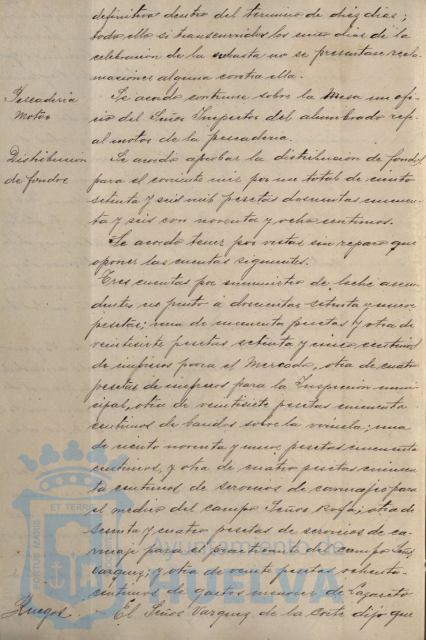 definitiva dentro del termino de diez dias;
todo ello si transcurridos los cinco dias de la
celebracion de la subasta no se presentase recla-
maciones alguna contra ella.
Pescaderia
Motor
Se acordó continue sobre la Mesa un ofi-
cio del Señor Inspector del alumbrado ref.
al motor de la pescaderia.
Distribución
de fondos
Se acordó aprobar la distribucion de fondos
para el corriente mes por un total de ciento
setenta y seis mil pesetas doscientas cincuen-
ta y seis con noventa y ocho centimos.
Se acordó tener por vistas sin reparo que
oponer las cuentas siguientes.
Tres cuentas por suministro de leche ascen-
dentes en junto á doscientas setenta y nueve
pesetas; una de cincuenta pesetas y otra de
veintisiete pesetas setenta y cinco centimos
de impresos para el Mercado, otra de cuatro
pesetas de impresos para la Inspeccion muni-
cipal, otra de veintisiete pesetas cincuenta
centimos de bandos sobre la viruela; una
de ciento noventa y nueve pesetas cincuenta
centimos, y otra de cuatro pesetas cincuen-
ta centimos de servicios de carruajes para
el medico del campo Señor Rofa; otra de
sesenta y cuatro pesetas de servicios de ca-
rruaje para el practicante del campo Señor
Vazquez; y otra de veinte pesetas ochenta
centimos de gastos menores de Lazareto
Ruegos
El Señor Vazquez de la Corte dijo que
PORTUS MARIS
ET TERRÆ
Ayuntamiento de
HUELVA